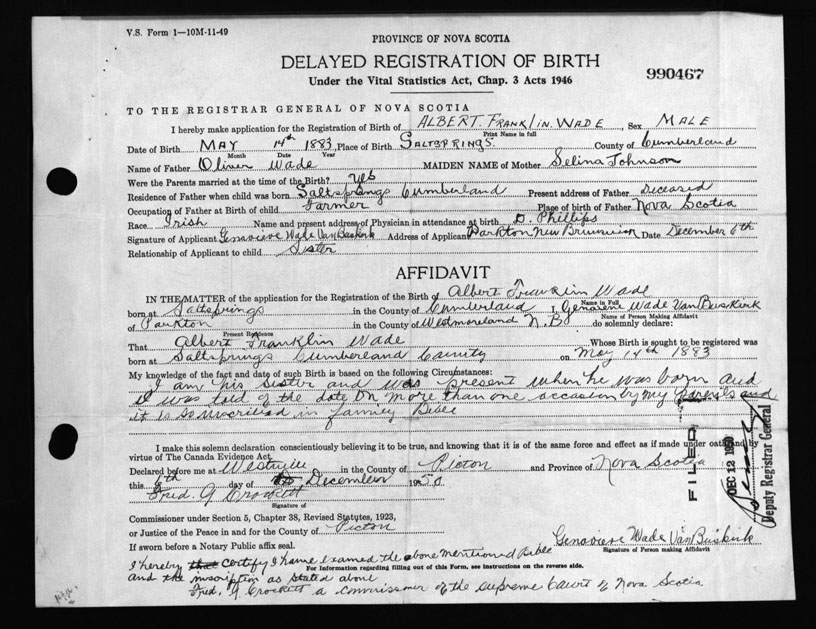 V.S. Form 1—10M-11-49
PROVINCE OF NOVA SCOTIA
DELAYED REGISTRATION OF BIRTH
Under the Vital Statistics Act, Chap. 3 Acts 1946
990467
TO THE REGISTRAR GENERAL OF NOVA SCOTIA
I hereby make application for the Registration of Birth of ALBERT. FRANKlIN. WADE, Sex MALE
Print Name in full
Date of Birth MAY 14th 1883, Place of Birth SALTSPRINGS. County of Cumberland
Month Date Year
Name of Father Oliver Wade MAIDEN NAME of Mother Selina Johnson
Were the Parents married at the time of the Birth? yes
Residence of Father when child was born Saltsprings Cumberland Present address of Father Deceased
Occupation of Father at Birth of child Farmer Place of birth of Father Nova Scotia
Race Irish Name and present address of Physician in attendance at birth D. Phillips
Signature of Applicant Genavieve Wade VanBuskirk Address of Applicant Parkton New Brunswick Date December 6th
Relationship of Applicant to child Sister
AFFIDAVIT
IN THE MATTER of the application for the Registration of the Birth of Albert Franklin Wade
Name in Full
born at Saltsprings in the County of Cumberland I, Genavieve Wade VanBuskirk
Name of Person Making Affidavit
of Parkton in the County of Westmoreland N.B. do solemnly declare:
Present Residence
That Albert Franklin Wade Whose Birth is sought to be registered was
born at Saltsprings Cumberland County on May 14th 1883
My knowledge of the fact and date of such Birth is based on the following Circumstances:
I am his sister and was present when he was born and
I was told of the date on more than one occasion by my Parents and
it is so inscribed in family Bible
I make this solemn declaration conscientiously believing it to be true, and knowing that it is of the same force and effect as if made under oath and by
virtue of The Canada Evidence Act.
Declared before me at Westville in the County of Picton and Province of Nova Scotia
this 6th day of December 1950
Fred. G Crockett
Signature of
Commissioner under Section 5, Chapter 38, Revised Statutes, 1923,
or Justice of the Peace in and for the County of Picton
If sworn before a Notary Public affix seal.
Genavieve Wade VanBuskirk
Signature of Person making Affidavit
I hereby certify I have examed the above mentioned Bible
For Information regarding filling out of this Form, see instructions on the reverse side.
and the inscription as stated above
Fred. G Crockett a commissioner of the supreme court of Nova Scotia
FILED
DEC 12 1950
Deputy Registrar General